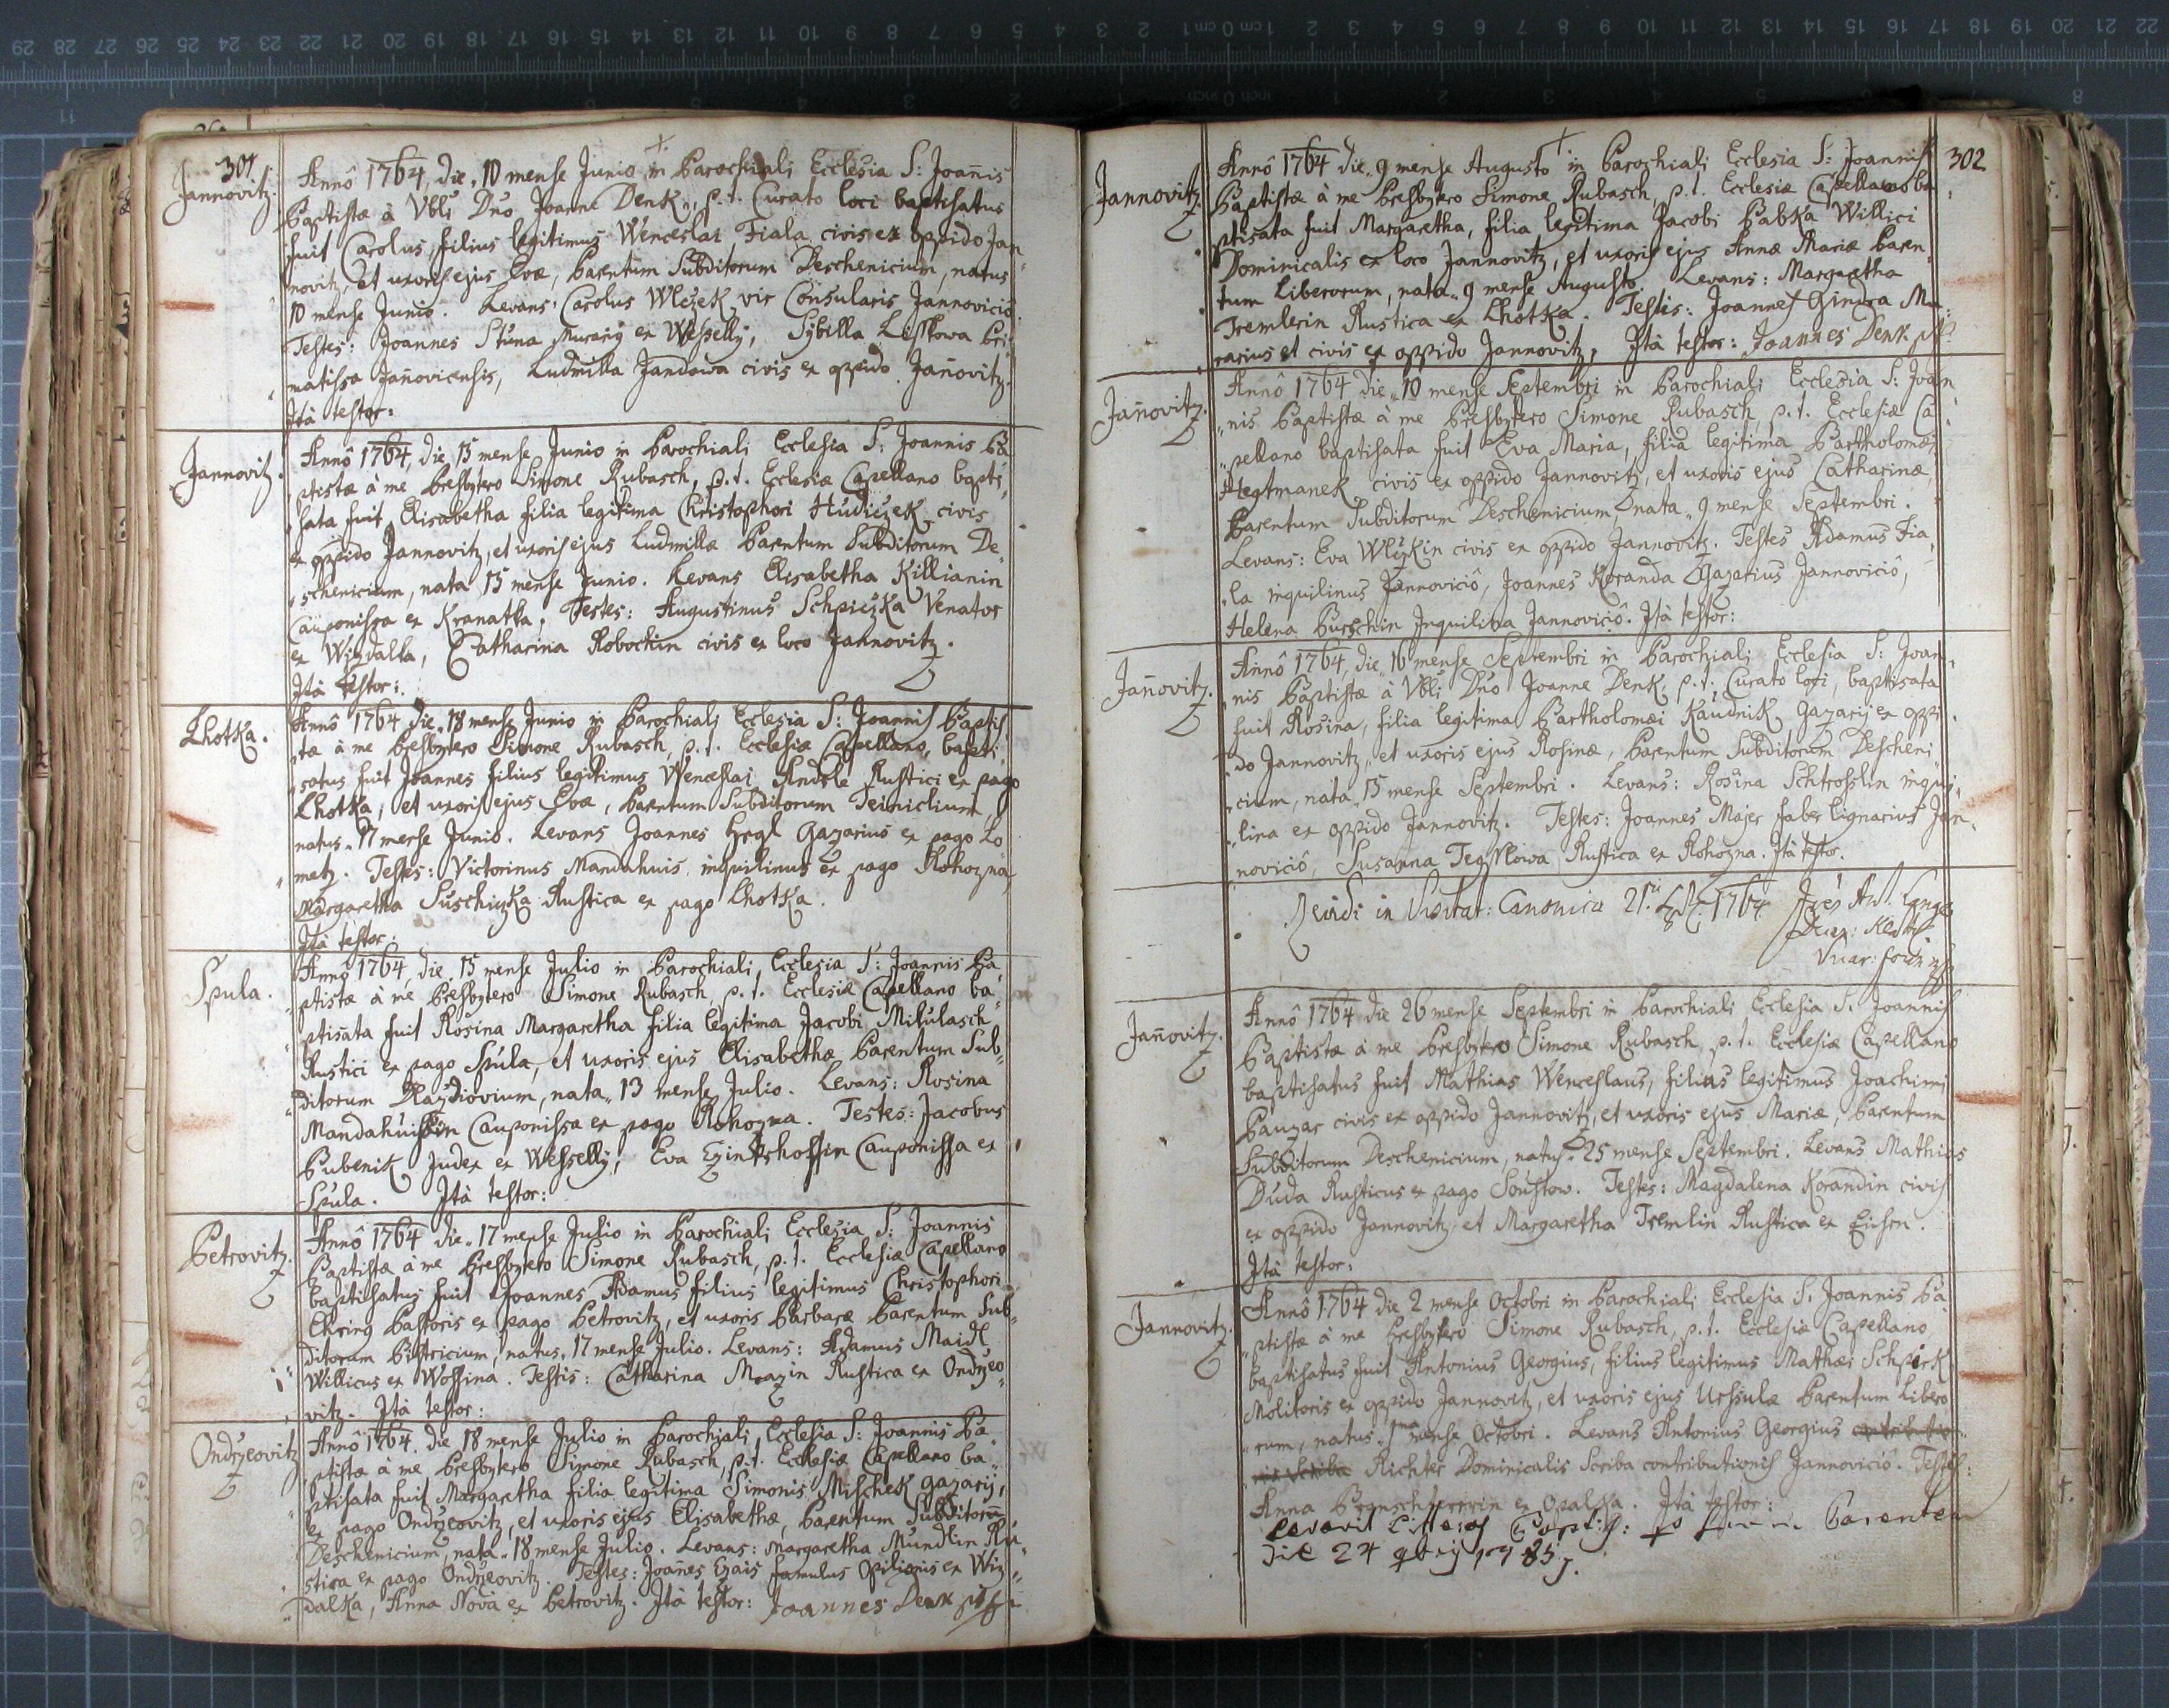 301
Jannovitz.
Annô 1764, die 10 mense Junio in Parochiali Ecclesia S: Joañis
Baptistæ à Vbli Dño Joanne Denk, p. t. Curato loci baptisatus
fuit Carolus, filius legitimus Wenceslai Fiala civis ex oppido Jan
novitz, et uxoris ejus Evæ, Parentum Subditorum Deschenicium, natus
10 mense Junio. Levans: Carolus Wlczek vir Consularis Jannoviciô.
Testes: Joannes Stuna Murarÿ ex Wesselly, Sybilla Lisskowa Pri
matissa Jañoviciensis, Ludmilla Jandowa civis ex oppido Jañovitz.
Ità testor:
Jannovitz.
Annô 1764, die 15 mense Junio in Parochiali Ecclesia S: Joannis Ba
ptistæ à me Presbytero Simone Rubasch, p. t. Ecclesiæ Capellano bapti
sata fuit Elisabetha filia legitima Christophori Hudiczek civis
ex oppido Jannovitz, et uxoris ejus Ludmillæ Parentum Subditorum De
schenicium, nata 15 mense Junio. Levans Elisabetha Killianin
Cauponissa ex Kranatka. Testes: Augustinus Schpiczka Venator
ex Wizdalka, Catharina Robochin civis ex loco Jannovitz.
Ità testor:
Lhotka.
Annô 1764 die 18 mense Junio in Parochiali Ecclesia S: Joannis Baptis
tæ à me Presbytero Simone Rubasch, p. t. Ecclesiæ Capellano, bapti
satus fuit Joannes filius legitimus Wenceslai Anderle Rustici ex pago
Lhotka, et uxoris ejus Evæ, Parentum Subditorum Teinicium,
natus 17 mense Junio. Levans Joannes Hegl Gazarius ex pago Lo
metz. Testes: Victorinus Mandahuis inquilinus ex pago Rohozna
Margaretha Suschiczka Rustica ex pago Lhotka.
Ità testor:
Spula.
Annô 1764, die 15 mense Julio in Parochiali Ecclesia S: Joannis Ba
ptistæ à me Presbytero Simone Rubasch, p. t. Ecclesiæ Capellano ba
ptisata fuit Rosina Margaretha filia legitima Jacobi Mikulasch
Rustici ex pago Spula, et uxoris ejus Elisabethæ Parentum Sub
ditorum, nata 13 mense Julio. Levans: Rosina
Mandahuisin Cauponissa ex pago Rohozna. Testes: Jacobus
Bubenik Judex ex Wesselly, Eva Cauponissa ex
Spula. Ità testor:
Petrovitz.
Annô 1764 die 17 mense Julio in Parochiali Ecclesia S: Joannis
Baptistæ à me Presbytero Simone Rubasch, p. t. Ecclesiæ Capellano
baptisatus fuit Joannes Adamus filius legitimus Christophori
Ehring Pastoris ex pago Petrovitz, et uxoris Barbaræ Parentum Sub
ditorum Bistricium, natus 17 mense Julio. Levans: Adamus Maidl
Willicus ex Wossina. Testis: Catharina Mrazin Rustica ex Ondrzeo
vitz. Ità testor:
Ondrzeovitz
Annô 1764. die 18 mense Julio in Parochiali Ecclesia S: Joannis Ba
ptistæ à me Presbytero Simone Rubasch, p. t. Ecclesiæ Capellano ba
ptisata fuit Margaretha filia legitima Simonis Mischek gazarij,
ex pago Ondrzeovitz, et uxoris ejus Elisabethæ, Parentum Subditorum
Deschenicium, nata 18 mense Julio. Levans: Margaretha Mundlin Ru
stica ex pago Ondrzeovitz. Testes: Joañes Czais famulus Opilionis ex Wiz
dalka, Anna Nova ex Petrovitz. Ità testor: Joannes Denk
302
Jannovitz
Annô 1764 die 9 mense Augusto in Parochiali Ecclesia S: Joannis
Baptistæ à me Presbytero Simone Rubasch, p. t. Ecclesiæ Capellano ba
ptisata fuit Margaretha, filia legitima Jacobi Babka Willici
Dominicalis ex loco Jannovitz, et uxoris ejus Annæ Mariæ Paren
tum Liberorum, nata 9 mense Augusto. Levans: Margaretha
Tremlerin Rustica ex Lhotka. Testis: Joannes Gindra Mu
rarius et civis ex oppido Jannovitz, Ità testor: Joannes Denk
Jañovitz.
Annô 1764 die 10 mense Septembri in Parochiali Ecclesia S: Joan
nis Baptistæ à me Presbytero Simone Rubasch, p. t. Ecclesiæ Ca
pellano baptisata fuit Eva Maria, filia legitima Bartholomæi
Hegtmanek civis ex oppido Jannovitz, et uxoris ejus Catharinæ,
Parentum Subditorum Deschenicium, nata 9 mense Septembri.
Levans: Eva Wlczkin civis ex oppido Jannovitz. Testes Adamus Fia
la inquilinus Jannoviciô, Joannes Koranda Gazarius Jannoviciô,
Helena Burschin Inquilina Jannoviciô. Ità testor:
Jañovitz.
Annô 1764, die 16 mense Septembri in Parochiali Ecclesia S: Joan
nis Baptistæ à Vbli Dño Joanne Denk, p. t. Curato loci, baptisata
fuit Rosina, filia legitima Bartholomæi Kaudnik Gazarij ex oppi
do Jannovitz, et uxoris ejus Rosinæ, Parentum Subditorum Descheni
cium, nata 15 mense Septembri. Levans: Rosina Schtrosslin inqui
lina ex oppido Jannovitz. Testes: Joannes Majer faber lignarius Jan
noviciô, Susanna Rustica ex Rohozna. Ità testor.
Revidi in Visitat: Canonica 21. 1764
Jañovitz.
Annô 1764 die 26 mense Septembri in Parochiali Ecclesia S. Joannis
Baptistæ à me Presbytero Simone Rubasch p. t. Ecclesiæ Capellano
baptisatus fuit Mathias Wenceslaus, filius legitimus Joachimi
Pauzar civis ex oppido Jannovitz, et uxoris ejus Mariæ, Parentum
Subditorum Deschenicium, natus 25 mense Septembri. Levans Mathias
Duda Rusticus ex pago Soustow. Testes: Magdalena Korandin civis
ex oppido Jannovitz et Margaretha Tremlin Rustica ex Eisrn.
Ità testor:
Jannovitz.
Annô 1764 die 2 mense Octobri in Parochiali Ecclesia S. Joannis Ba
ptistæ à me Presbytero Simone Rubasch, p. t. Ecclesiæ Capellano
baptisatus fuit Antonius Georgius, filius legitimus Mathæi Schpirk
Molitoris ex oppido Jannovitz, et uxoris ejus Urssulæ Parentum Libero
rum, natus 1ma mense Octobri. Levans Antonius Georgius
Richter Dominicalis Scriba contributionis Jannoviciô. Testis:
Anna ex Opalka. Ità testor:
Levavit Litteras Baptis: Parentem
die 24 1785.